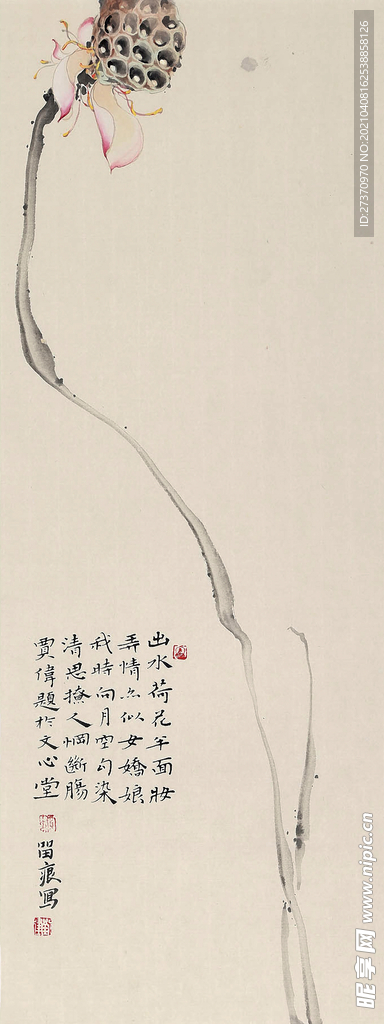 出水荷花半面妝
弄情亦似女嬌娘
我時向月空勾染
清思撩人惘斷腸
賈偉題於文心堂
留痕寫
ID:27370970 NO:20210408162538858126
昵享网 www.nipic.cn